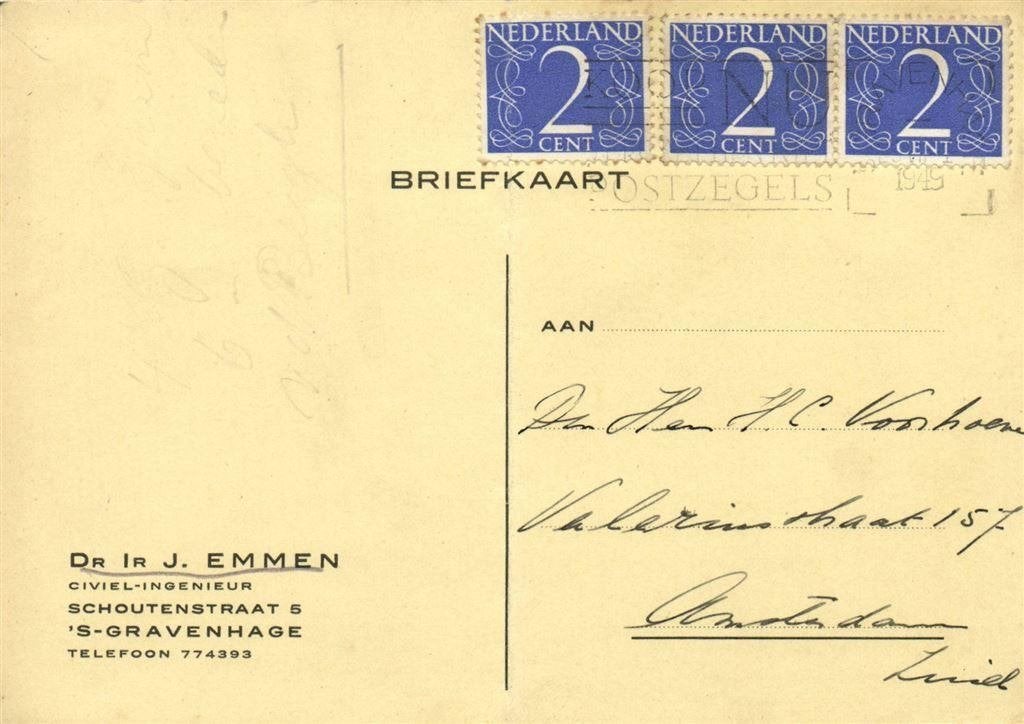 NEDERLAND NEDERLAND NEDERLAND
2 2 2
CENT CENT CENT
NU
POSTZEGELS
1949
BRIEFKAART
AAN
Den Heer H. C. Voorhoeve
Valeriusstraat 157
Amsterdam
Zuid
DR IR J. EMMEN
CIVIEL-INGENIEUR
SCHOUTENSTRAAT 5
'S-GRAVENHAGE
TELEFOON 774393